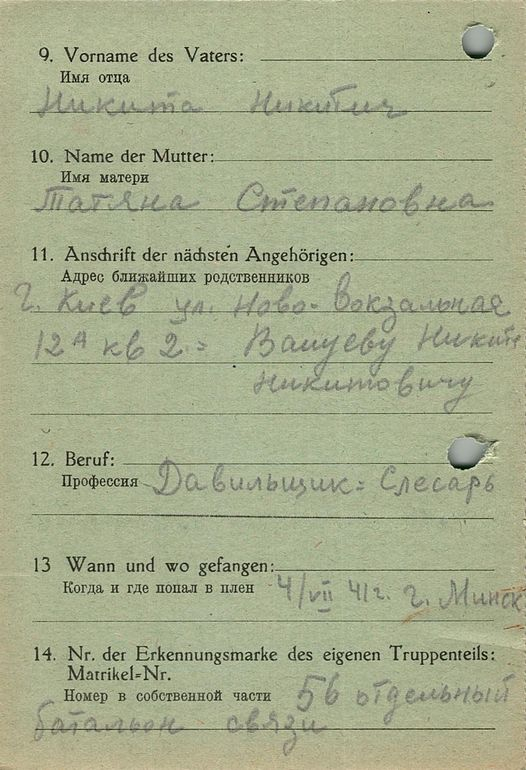 9. Vorname des Vaters:
Имя отца
Никита Никитич
10. Name der Mutter:
Имя матери
Татяна Степановна
11. Anschrift der nächsten Angehörigen:
Адрес ближайших родственников
г. Киев ул. Ново-Вокзальная
12А кв 2 = Валуеву Никите
Никитовичу
12. Beruf:
Профессия Давильщик = Слесарь
13 Wann und wo gefangen:
Когда и где попал в плен 4/VII 41г. г. Минск
14. Nr. der Erkennungsmarke des eigenen Truppenteils:
Matrikel=Nr.
Номер в собственной части 56 отдельный
батальон связи